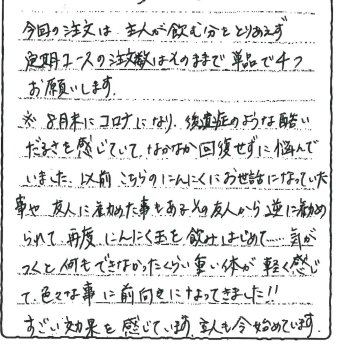 今回の注文は、主人が飲む分をとりあえず
定期コースの注文数はそのままで単品で4つ
お願いします。
※ 8月末にコロナになり、後遺症のような酷い
だるさを感じていて、なかなか回復せずに悩んで
いました、以前こちらのにんにくにお世話になっていた
事や友人に勧めた事もあるその友人から逆に勧め
られて、再度にんにく玉を飲みはじめて……気が
つくと何もできなかったくらい重い体が軽く感じ
て、色々な事に前向きになってきました!!
すごい効果を感じています。主人も今始めています。